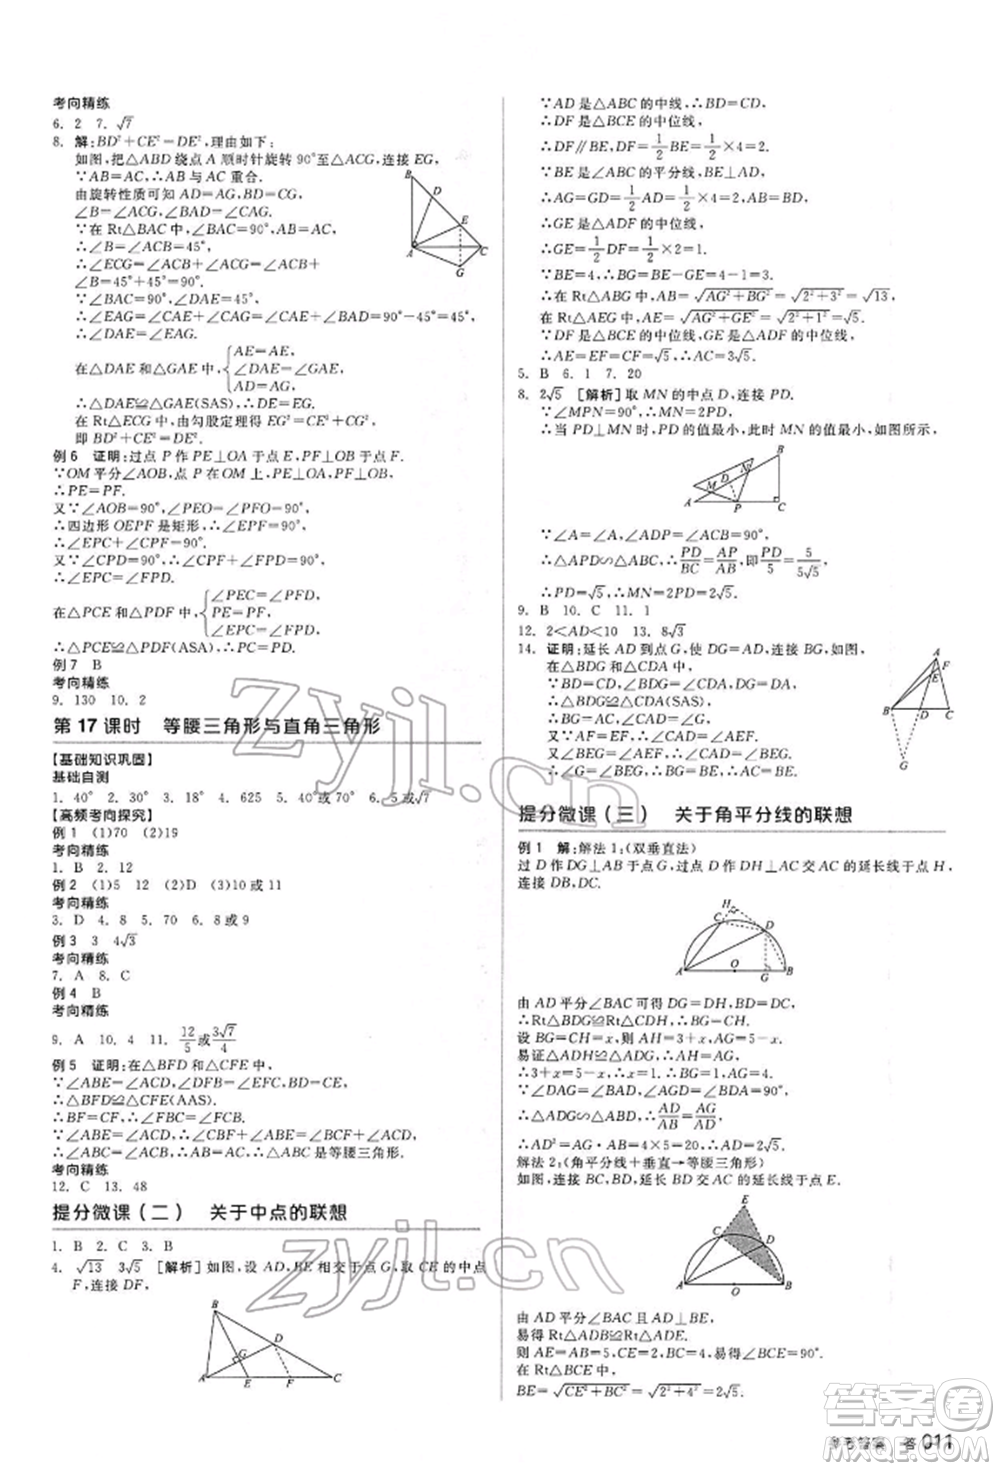 考向精练
6. 2  7. √7
8. 解:BD²+CE²=DE²,理由如下:
如图,把△ABD绕点A顺时针旋转90°至△ACG,连接EG,
∵AB=AC,∴AB与AC重合.
由旋转性质可知AD=AG,BD=CG,
∠B=∠ACG,∠BAD=∠CAG.
∵在Rt△BAC中,∠BAC=90°,
∴∠ECG=∠ACB+∠ACG=∠ACB+
∠B=45°+45°=90°.
∵∠BAC=90°,∠DAE=45°,
∴∠EAG=∠CAE+∠CAG=∠CAE+∠BAD=90°-45°=45°,
∴∠DAE=∠EAG.
在△DAE和△GAE中,{AE=AE, ∠DAE=∠EAG, AD=AG,
∴△DAE≌△GAE(SAS),∴DE=EG.
在Rt△ECG中,由勾股定理得EG²=CE²+CG²,
即BD²+CE²=DE².
例6 证明:过点P作PE⊥OA于点E,PF⊥OB于点F.
∵OM平分∠AOB,点P在OM上,PE⊥OA,PF⊥OB,
∴PE=PF.
又∵∠AOB=90°,∠PEO=∠PFO=90°,
∴四边形OEPF是矩形,∴∠EPF=90°,
∴∠EPC+∠CPF=90°.
又∵∠CPD=90°,∴∠CPF+∠FPD=90°,
∴∠EPC=∠FPD.
在△PCE和△PDF中,{∠PEC=∠PFD, PE=PF, ∠EPC=∠FPD,
∴△PCE≌△PDF(ASA),∴PC=PD.
例7 B
考向精练
9. 130  10. 2
第17课时 等腰三角形与直角三角形
【基础知识巩固】
基础自测
1. 40°  2. 30°  3. 18°  4. 625  5. 20°  6. 5或√7
【高频考向探究】
例1 (1)70 (2)19
考向精练
1. B  2. 12
例2 (1)5 (2)D (3)10或11
考向精练
3. D  4. 8  5. 70  6. 8或9
例3 3 4√3
考向精练
7. A  8. C
例4 B
考向精练
9. A  10. 4  11. 12/5或3√7/4
例5 证明:在△BFD和△CFE中,
∵∠ABE=∠ACD,∠DFB=∠EFC,BD=CE,
∴△BFD≌△CFE(AAS),
∴BF=CF,∴∠FBC=∠FCB.
∵∠ABE=∠ACD,∴∠CBF+∠ABE=∠BCF+
∠ACD,∴∠ABC=∠ACB,∴△ABC是等腰三角形.
考向精练
12. C  13. 48
提分微课(二) 关于中点的联想
1. B  2. C  3. B
4. √13 3√5 [解析]如图,设AD,BE相交于点G,取CE的中点
F,连接DF,
∵AD是△ABC的中线,∴BD=CD,
∴DF是△BCE的中位线,
∴DF∥BE,DF=1/2BE=1/2×4=2.
∵BE是∠ABC的平分线,BE⊥AD,
∴AG=GD=1/2AD=1/2×4=2,
∴GE是△ADF的中位线,
∴GE=1/2DF=1/2×2=1.
∵BE=4,∴BG=BE-GE=4-1=3.
∴在Rt△ABG中,AB=√(AG²+BG²)=√(2²+3²)=√13,
在Rt△AEG中,AE=√(AG²+GE²)=√(2²+1²)=√5.
∵DF是△BCE的中位线,GE是△ADF的中位线,
∴AE=EF=CF=√5,∴AC=3√5.
5. B  6. 1  7. 20
8. 2√5 [解析]取MN的中点D,连接PD.
∵∠MPN=90°,∴MN=2PD,
∴当PD⊥MN时,PD的值最小,此时MN的值最小,如图所示,
∵∠A=∠A,∠ADP=∠ACB=90°,
∴△APD∽△ABC,∴PD/BC=AP/AB,即PD/5=5/5√5,
∴PD=√5,∴MN=2PD=2√5.
9. B  10. C  11. 1
12. 2<AD<10  13. 8√3
14. 证明:延长AD到点G,使DG=AD,连接BG,如图.
在△BDG和△CDA中,
∵BD=CD,∠BDG=∠CDA,DG=DA,
∴△BDG≌△CDA(SAS),
∴BG=AC,∠CAD=∠G.
又∵AE=EF,∴∠CAD=∠AFE.
又∵∠BFG=∠AFE,∴∠CAD=∠BFG,
∴∠G=∠BFG,∴BG=BF,∴AC=BF.
提分微课(三) 关于角平分线的联想
例1 解:解法1:(双垂直法)
过D作DG⊥AB于点G,过点D作DH⊥AC交AC的延长线于点H,
连接DB,DC.
由AD平分∠BAC可得DG=DH,BD=CD,
∴Rt△BDG≌Rt△CDH,∴BG=CH.
设BG=CH=x,则AH=3+x,AG=5-x.
易证△ADH≌△ADG,∴AH=AG,
∴3+x=5-x,∴x=1,∴AG=4.
∵∠DAG=∠BAD,∠AGD=∠BDA=90°,
∴△ADG∽△ABD,∴AD/AB=AG/AD,
∴AD²=AG·AB=4×5=20,∴AD=2√5.
解法2:(角平分线+垂直→等腰三角形)
如图,延长BD,与AC的延长线交于点E.
由AD平分∠BAC且AD⊥BE,
易得Rt△ADB≌Rt△ADE.
∴AE=AB=5,CE=2,BC=4.
在Rt△BCE中,
BE=√(CE²+BC²)=√(2²+4²)=2√5.
参考答案 答 011